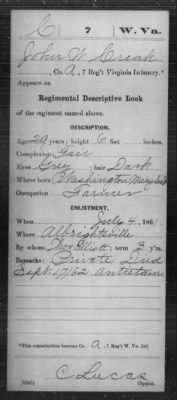 C | 7 | W. Va.
John W Creak
, Co. A, 7 Reg't Virginia Infantry.*
Appears on
Regimental Descriptive Book
of the regiment named above.
DESCRIPTION.
Age 29 years; height 6 feet inches.
Complexion Fair
Eyes Grey; hair Dark
Where born Washington Maryland
Occupation Farmer
ENLISTMENT.
When July 4, 1861.
Where Albrightsville
By whom ; term 3 y'rs.
Remarks: Private Died
Sept 17/62 Antietam
*This organization became Co. A, 7 Reg't W. Va. Inf.
C Lucas
Copyist.